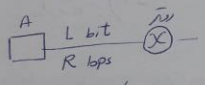 A
L bit
R bps
X